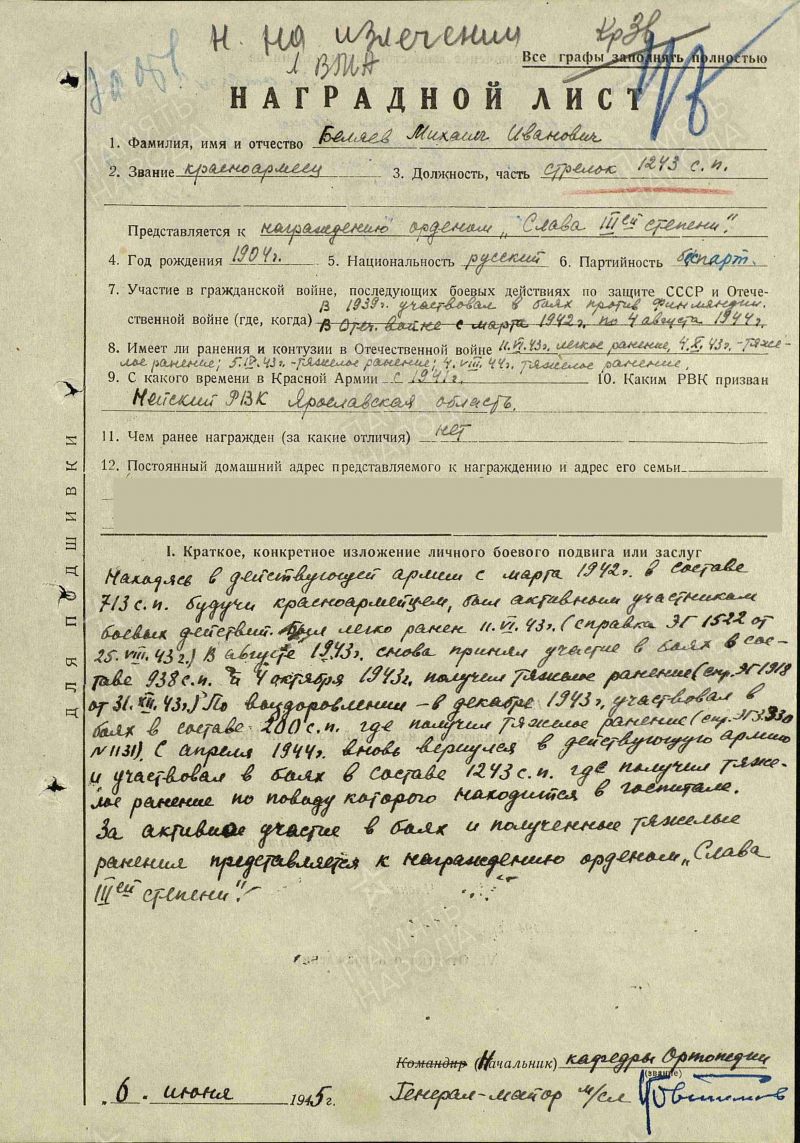 Н. на излечении
Кр Зв
1 ВМА
Все графы заполнять полностью
НАГРАДНОЙ ЛИСТ
1. Фамилия, имя и отчество Беляев Михаил Иванович
2. Звание красноармеец 3. Должность, часть стрелок 1243 с.п.
Представляется к награждению орденом „Слава IIIей степени".
4. Год рождения 1904г. 5. Национальность русский 6. Партийность б/парт.
7. Участие в гражданской войне, последующих боевых действиях по защите СССР и Отече-
В 1939г. участвовал в боях против Финляндии.
ственной войне (где, когда) В Отеч. войне с марта 1942г. по 4 августа 1944г.
8. Имеет ли ранения и контузии в Отечественной войне 11.VI.43г. легкое ранение, 4.X.43г. -тяже-
лое ранение; 5.IV.43г. -тяжелое ранение; 4.VIII.44г. тяжелое ранение.
9. С какого времени в Красной Армии с 1941г. 10. Каким РВК призван
Нейский РВК Ярославская область.
11. Чем ранее награжден (за какие отличия) нет
12. Постоянный домашний адрес представляемого к награждению и адрес его семьи
I. Краткое, конкретное изложение личного боевого подвига или заслуг
Находясь в действующей армии с марта 1942г. в составе
713 с.п. будучи красноармейцем, был активным участником
боевых действий. Был легко ранен 11.VI.43г. (справка ЭГ 1522 от
25.VIII.43г.) В августе 1943г. снова принял участие в боях в сос-
таве 938 с.п. и 4 октября 1943г. получил тяжелое ранение (спр. ЭГ 1918
от 31.XII.43г.) По выздоровлении - в декабре 1943г. участвовал в
боях в составе 200 с.п. где получил тяжелое ранение (спр. ЭГ 3330
N 1131). С апреля 1944г. вновь вернулся в действующую армию
и участвовал в боях в составе 1243 с.п. где получил тяже-
лое ранение по поводу которого находится в госпитале.
За активное участие в боях и полученные тяжелые
ранения представляется к награждению орденом „Слава
IIIей степени".
ДЛЯ ПОДШИВКИ
Командир (Начальник) кафедры Ортопедии
(звание)
6. июня 1945г. Генерал-майор м/сл
ПАМЯТЬ НАРОДА